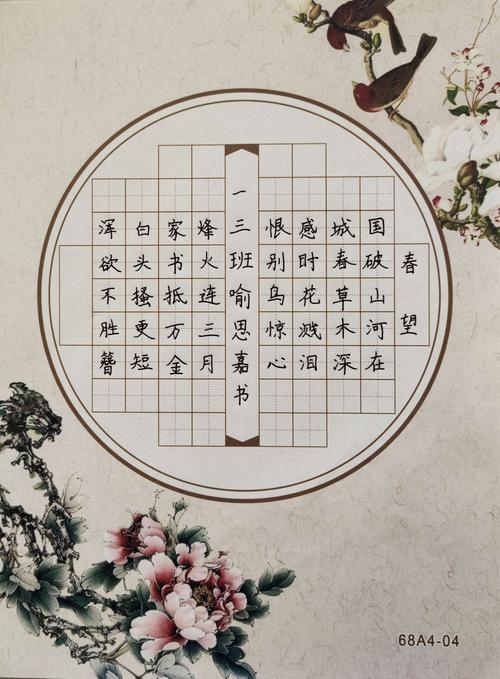 春望
国破山河在
城春草木深
感时花溅泪
恨别鸟惊心
一三班喻思嘉书
烽火连三月
家书抵万金
白头搔更短
浑欲不胜簪
68A4-04